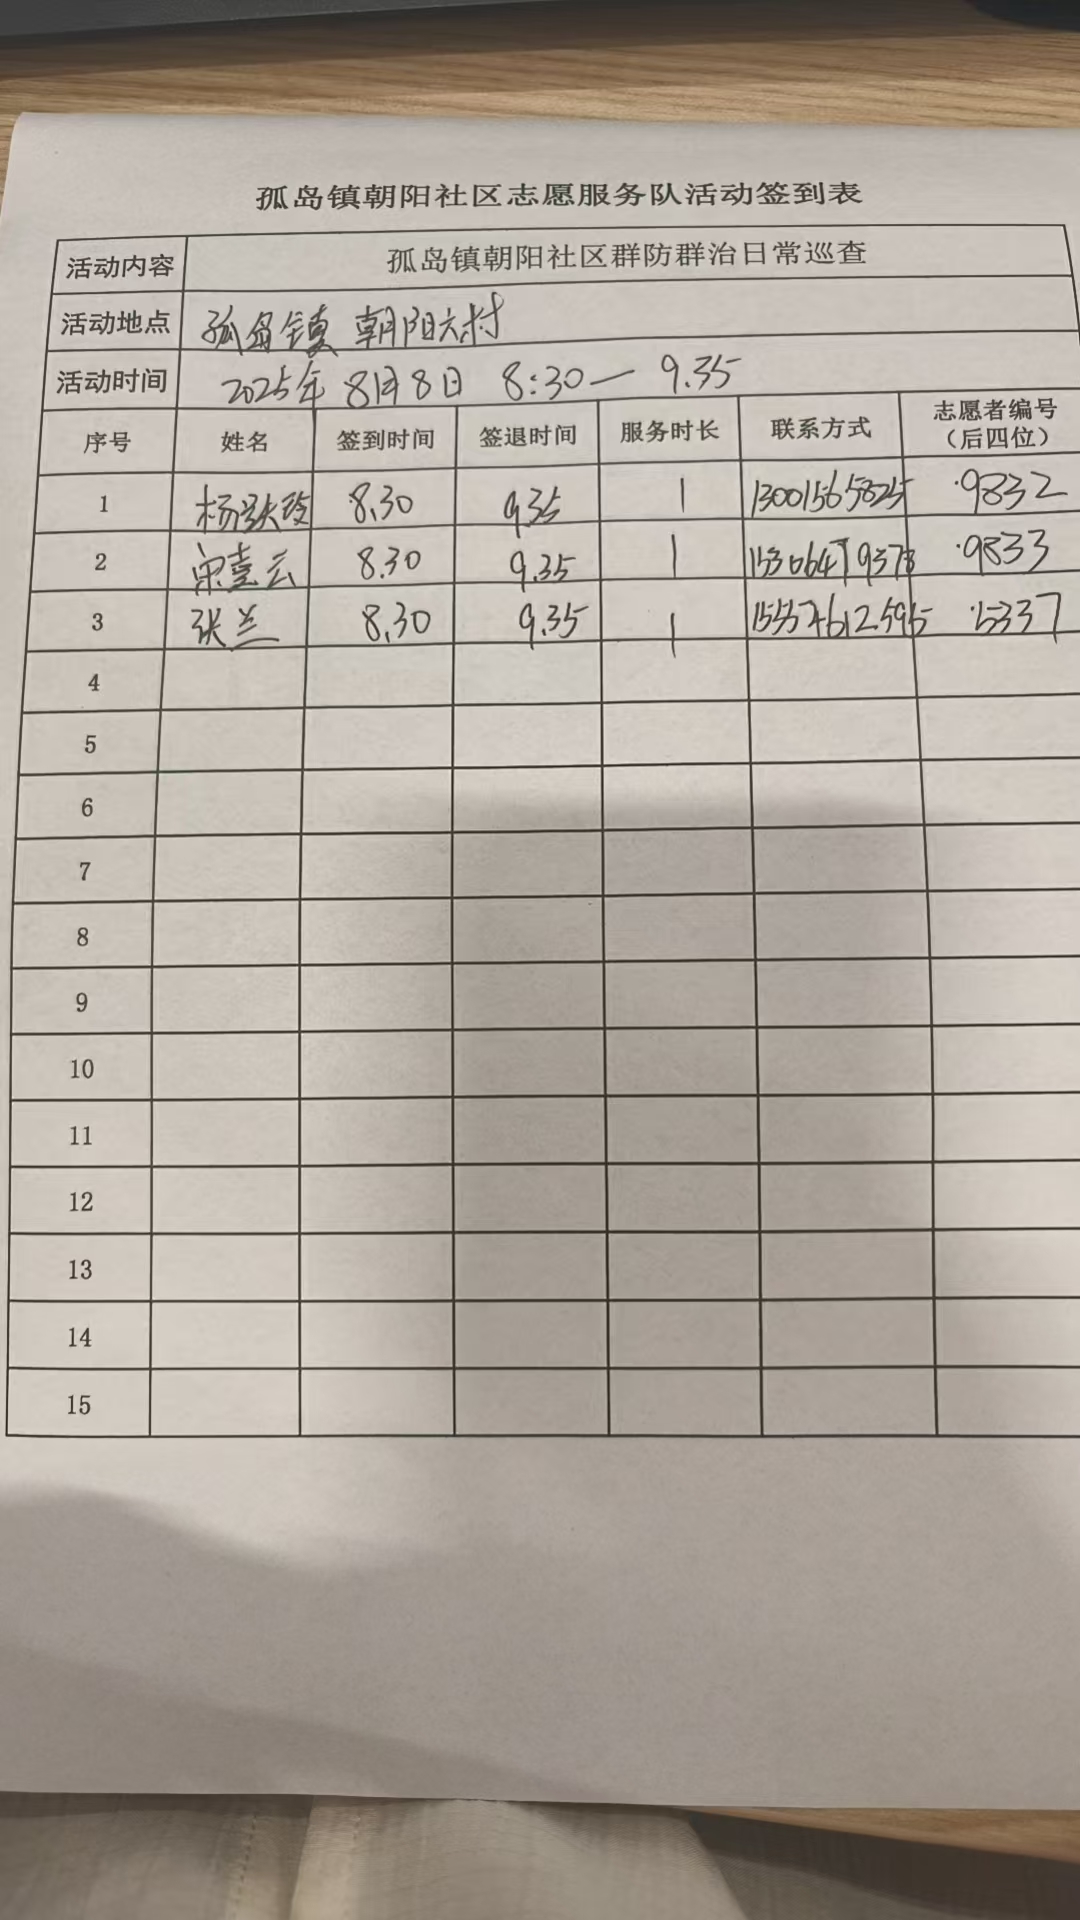 孤岛镇朝阳社区志愿服务队活动签到表
活动内容 孤岛镇朝阳社区群防群治日常巡查
活动地点 孤岛镇 朝阳六村
活动时间 2025年 8月8日 8:30— 9.35
序号 姓名 签到时间 签退时间 服务时长 联系方式 志愿者编号（后四位）
1 杨 8.30 9.35 1 13001565825 ·9832
2 宋喜云 8.30 9.35 1 15306479378 ·9833
3 张兰 8.30 9.35 1 15557612595 ·5337
4
5
6
7
8
9
10
11
12
13
14
15